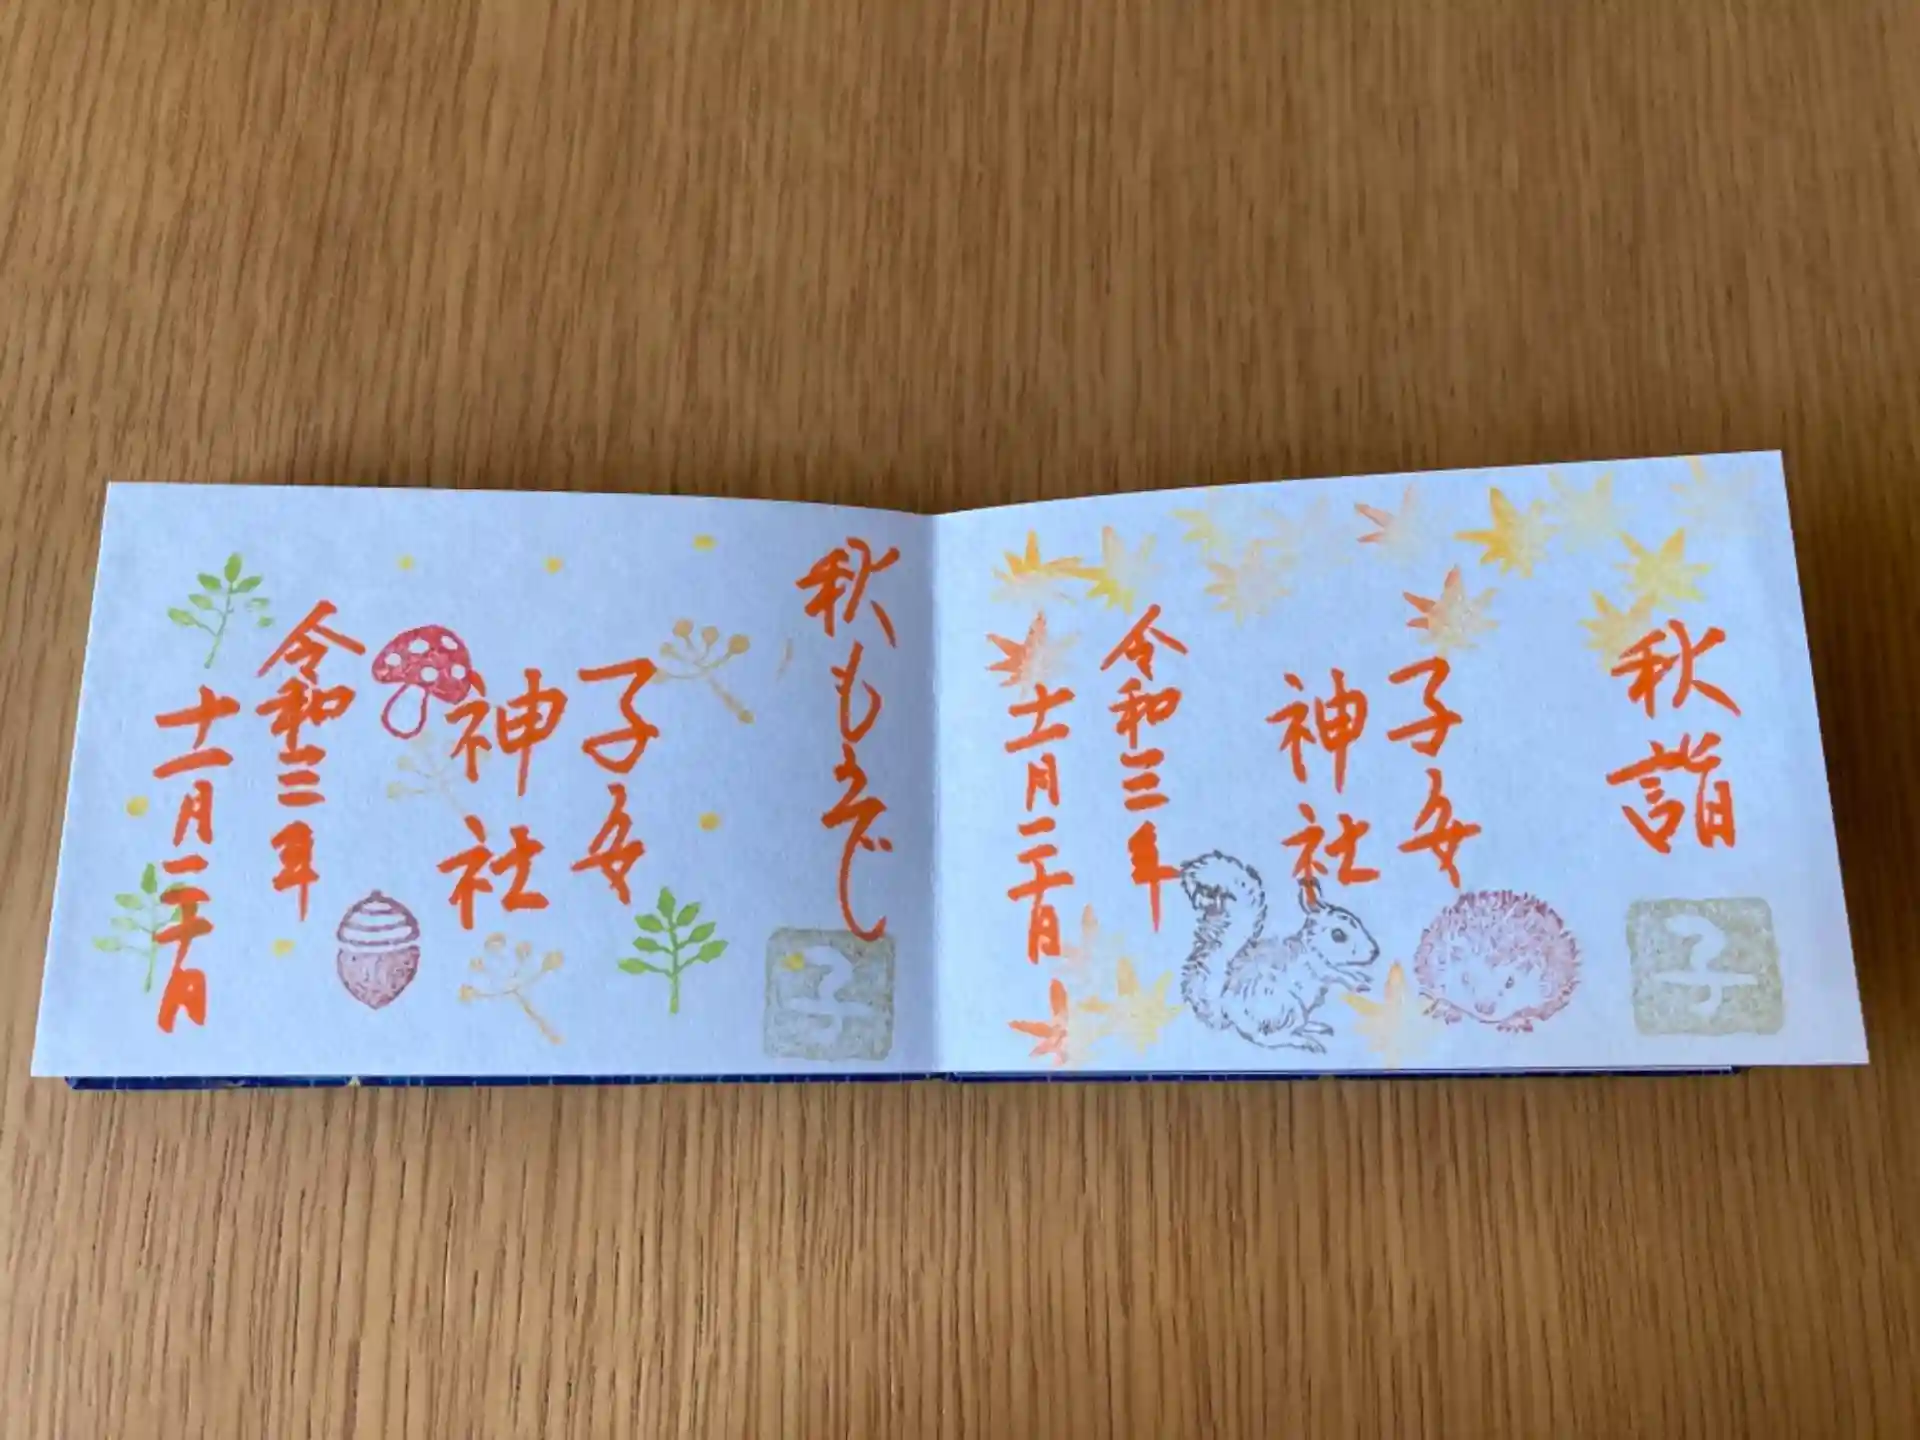 秋詣
子安
神社
令和三年
十一月二十日
子
秋もみじ
子安
神社
令和三年
十一月二十日
子